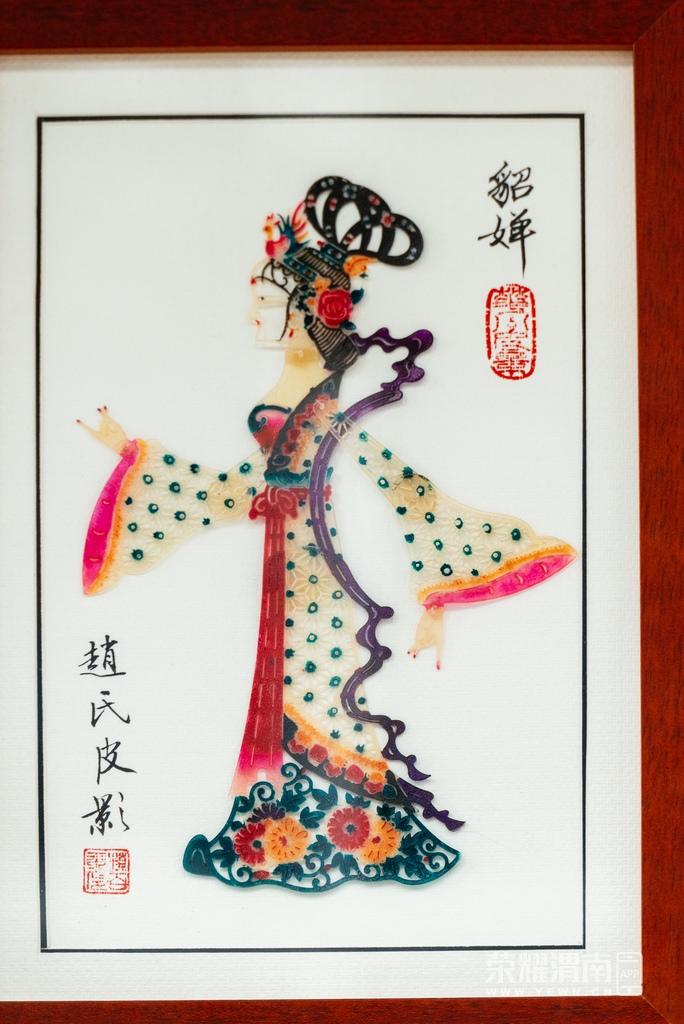 貂蝉
趙氏皮影
荣耀渭南
APP
WWW.YEWN.CN